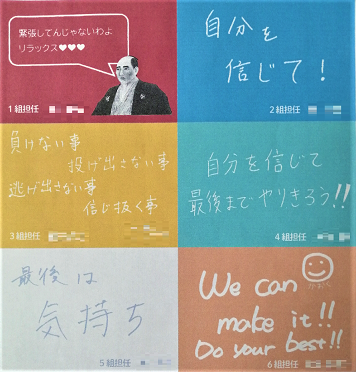 緊張してんじゃないわよ
リラックス♥♥♥
1組担任
自分を
信じて!
2組担任
負けない事
投げ出さない事
逃げ出さない事
信じ抜く事
3組担任
自分を信じて
最後までやりきろう!!
4組担任
最後は
気持ち
5組担任
We can
make it!!
Do your best!!
6組担任